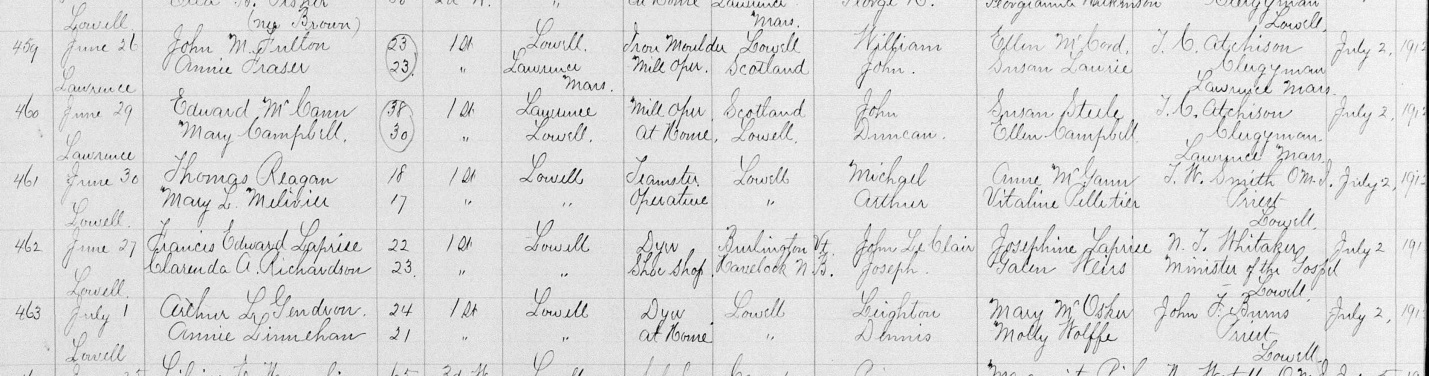 (nee Brown)
Lowell Mars. Clergyman Lowell.
459 June 26 John M. Fulton 23 1st Lowell. Iron Moulder Lowell William Ellen McCord. T. C. Atchison July 2, 191
Annie Fraser 23. " Lawrence Mill Oper. Scotland John. Susan Laurie Clergyman
Lawrence Mars. Lawrence Mars.
460 June 29 Edward McCann 38 1st Lawrence Mill Oper. Scotland John Susan Steele T. C. Atchison July 2, 191
Mary Campbell. 30 " Lowell. At Home. Lowell. Duncan. Ellen Campbell. Clergyman.
Lawrence Lawrence Mars.
461 June 30 Thomas Reagan 18 1st Lowell Teamster Lowell Michael Anne McGann T. W. Smith O.M.I. July 2, 191
Mary L. Melivier 17 " " Operative " Arthur Vitaline Pelletier Priest
Lowell. Lowell.
462 June 27 Francis Edward Laprise 22 1st Lowell Dyer Burlington Vt. John Le Clair Josephine Laprise N. T. Whitaker July 2 191
Clarenda A. Richardson 23. " " Shoe Shop. Havelock N.B. Joseph. Galen Weirs Minister of the Gospel
Lowell. Lowell.
463 July 1 Arthur L. Gendron. 24 1st Lowell Dyer Lowell Leighton Mary McOsker John F. Burns July 2, 191
Annie Linnehan 21 " " at Home " Dennis Molly Wolffe Priest
Lowell Lowell.